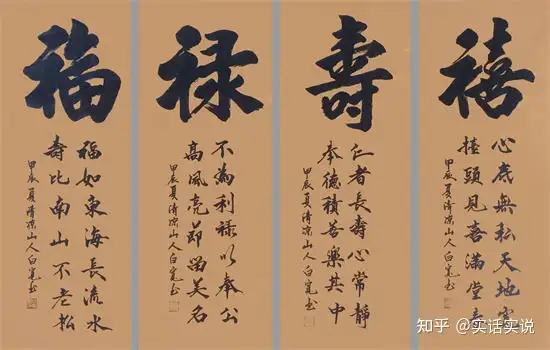 福
福如東海長流水
壽比南山不老松
甲辰夏清凉山人白寬书
禄
不為利禄以奉公
高風亮節留美名
甲辰夏清凉山人白寬书
壽
仁者長壽心常靜
奉德積善樂其中
甲辰夏清凉山人白寬书
禧
心底無私天地寬
擡頭見喜滿堂
甲辰夏清凉山人白寬书
知乎 @实话实说